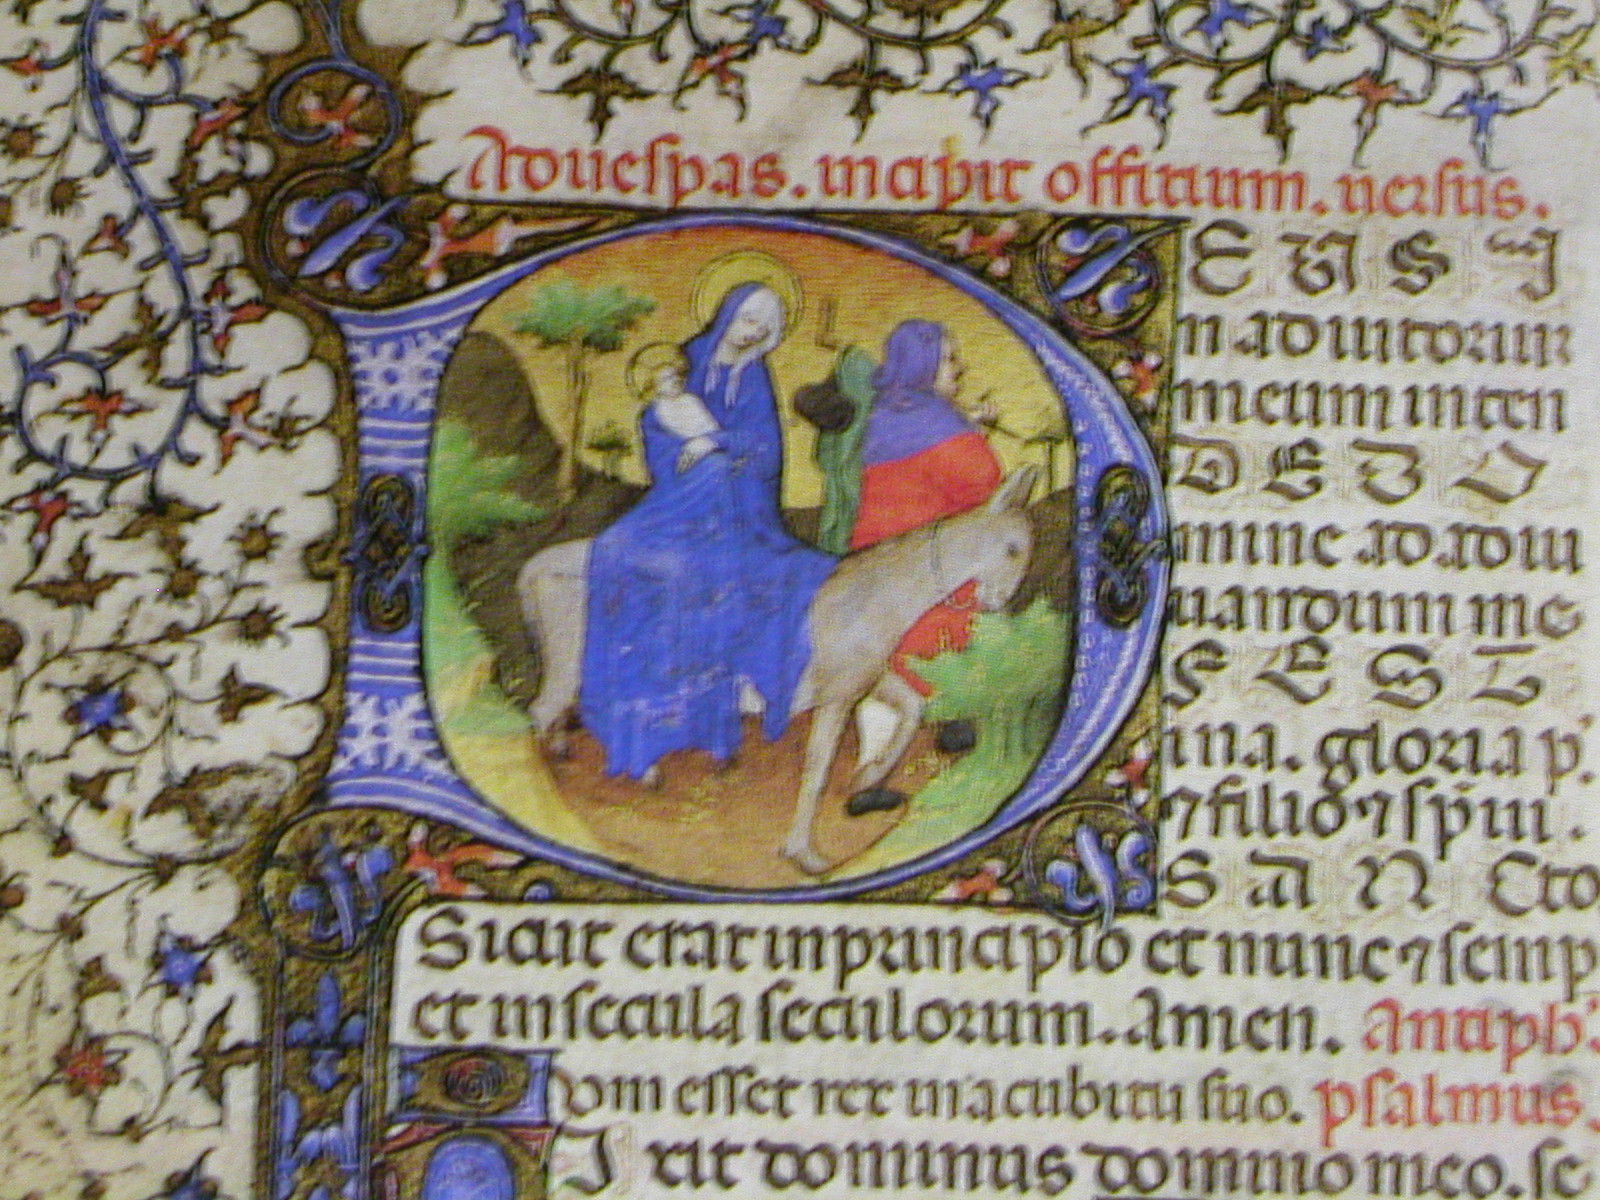 Aduesp̱as. incipit offitium. versus.
E U S I
n adiutorium
meum inten
D E D O
mine ad adiu
uandum me
F E S T
ina. gloria p̱.
⁊ filio ⁊ sp̄ui.
S A N Cto
Sicut erat in principio et nunc ⁊ semp
et in secula seculorum. Amen. Antiph'
Dom esset rex in acubitu suo. psalmus.
Ixit dominus domino meo. se